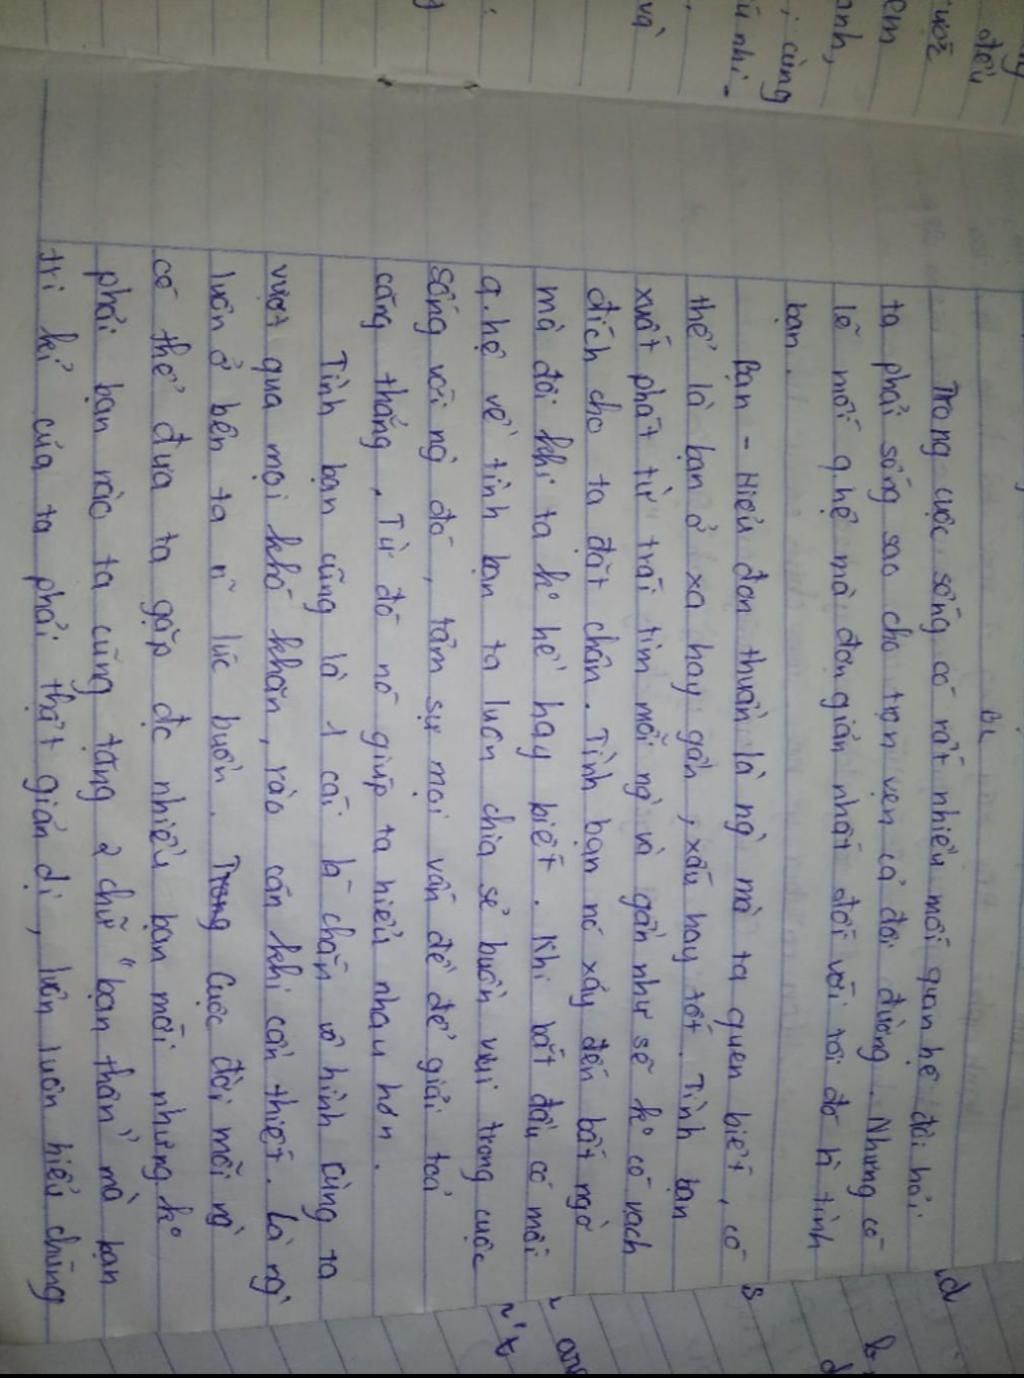 Bl
Trong cuộc sống có rất nhiều mối quan hệ đòi hỏi
ta phải sống sao cho trọn vẹn cả đôi đường. Nhưng có
lẽ mối q.hệ mà đơn giản nhất đối với tôi đó là tình
bạn.
Bạn - Hiểu đơn thuần là ng` mà ta quen biết, có
thể là bạn ở xa hay gần, xấu hay tốt. Tình bạn
xuất phát từ trái tim mỗi ng` và gần như sẽ k° có vạch
đích cho ta đặt chân. Tình bạn nó xảy đến bất ngờ
mà đôi khi ta k° hề hay biết. Khi bắt đầu có mối
q.hệ về tình bạn ta luôn chia sẻ buồn vui trong cuộc
sống với ng` đó, tâm sự mọi vấn đề để giải toả
căng thẳng. Từ đó nó giúp ta hiểu nhau hơn.
Tình bạn cũng là 1 cái là chắn vô hình cùng ta
vượt qua mọi khó khăn, rào cản khi cần thiết. Là ng`
luôn ở bên ta n~ lúc buồn. Trong cuộc đời mỗi ng`
có thể đưa ta gặp đc nhiều bạn mới nhưng k°
phải bạn nào ta cũng tặng 2 chữ "bạn thân" mà bạn
tri kỉ của ta phải thật giản dị, luôn luôn hiểu chúng
đều
em
anh,
i cùng
ũ nhi.
và